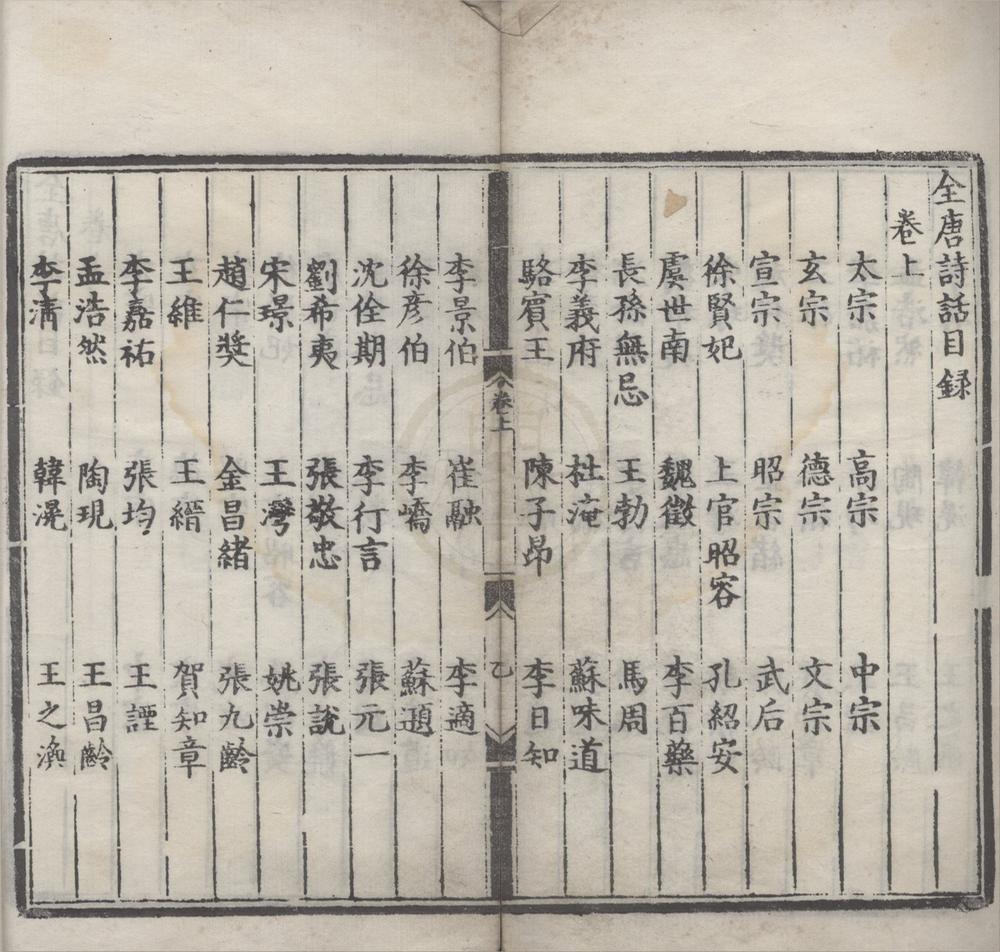 全唐詩話目録
卷上
太宗 高宗 中宗
玄宗 德宗 文宗
宣宗 昭宗 武后
徐賢妃 上官昭容 孔紹安
虞世南 魏徵 李百藥
長孫無忌 王勃 馬周
李義府 杜淹 蘇味道
駱賓王 陳子昂 李日知
卷上
乙
李景伯 崔融 李適
徐彦伯 李嶠 蘇頲
沈佺期 李行言 張元一
劉希夷 張敬忠 張説
宋璟 王灣 姚崇
趙仁奬 金昌緒 張九齡
王維 王縉 賀知章
李嘉祐 張均 王諲
孟浩然 陶現 王昌齡
李清 韓滉 王之渙